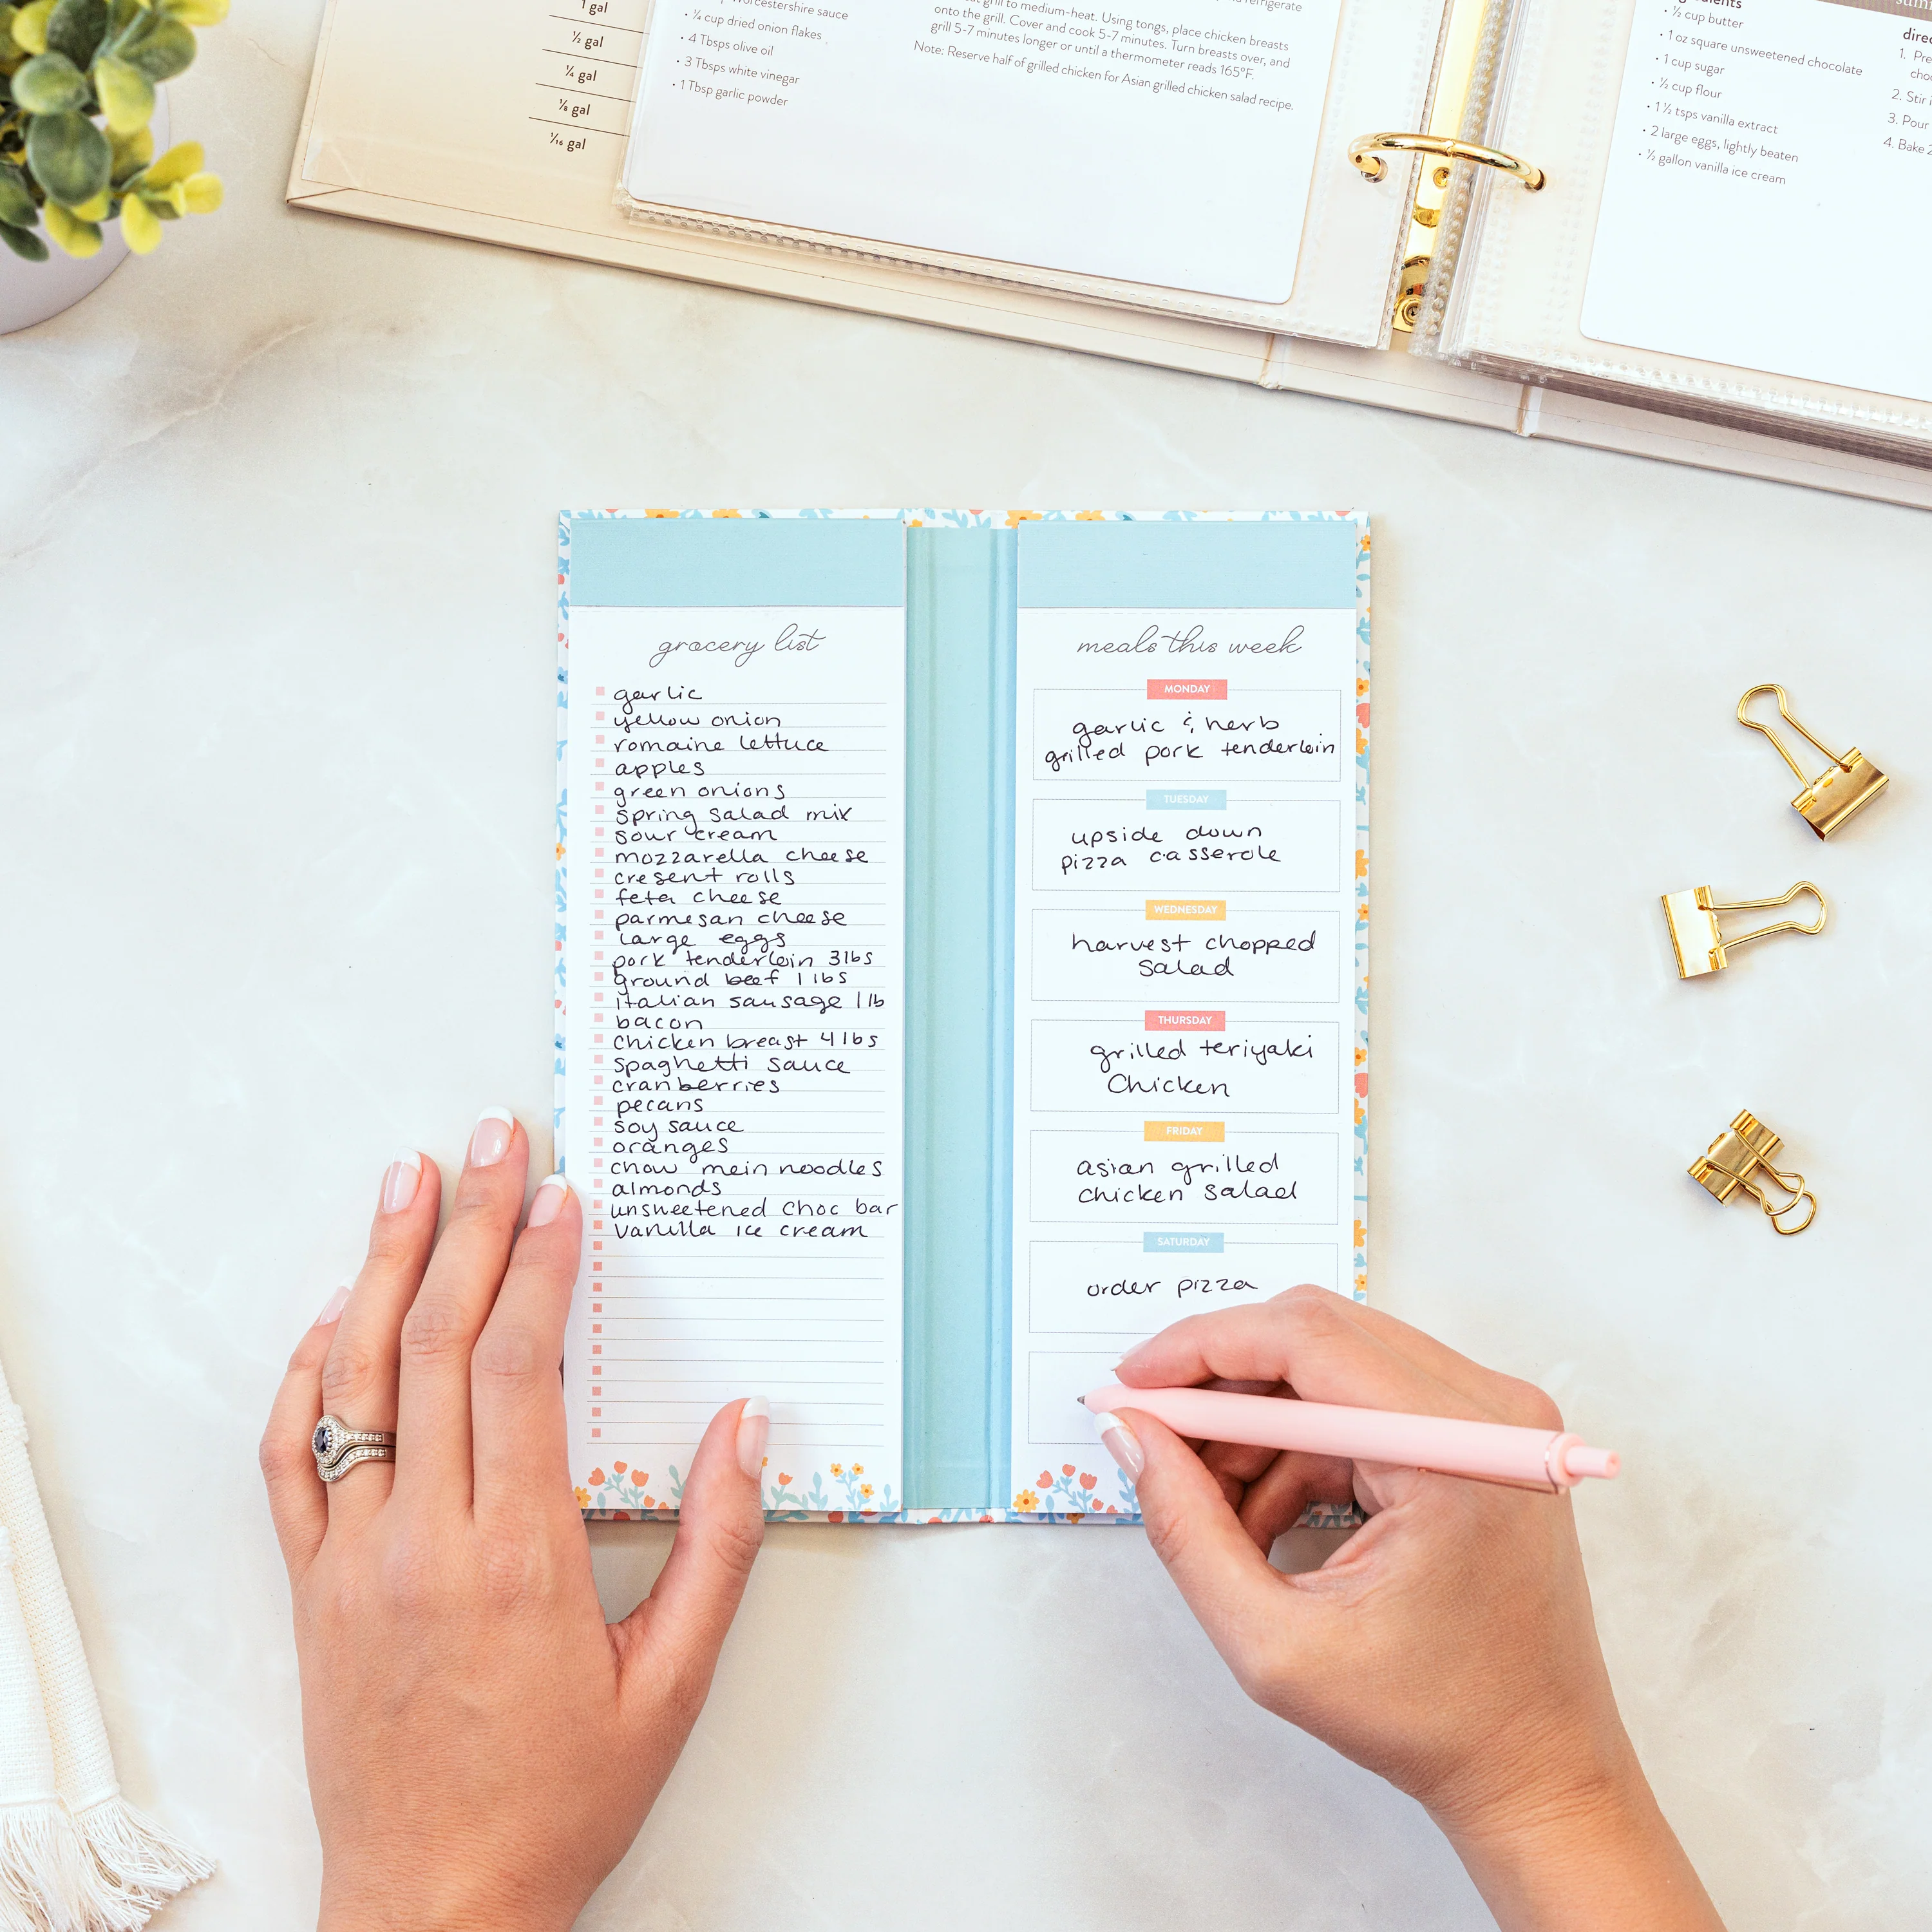 1 gal
½ gal
¼ gal
⅛ gal
1⁄16 gal
Worcestershire sauce
• ¼ cup dried onion flakes
• 4 Tbsps olive oil
• 3 Tbsps white vinegar
• 1 Tbsp garlic powder
refrigerate
grill to medium-heat. Using tongs, place chicken breasts
onto the grill. Cover and cook 5-7 minutes. Turn breasts over, and
grill 5-7 minutes longer or until a thermometer reads 165°F.
Note: Reserve half of grilled chicken for Asian grilled chicken salad recipe.
• ½ cup butter
• 1 oz square unsweetened chocolate
• 1 cup sugar
• ½ cup flour
• 1 ½ tsps vanilla extract
• 2 large eggs, lightly beaten
• ½ gallon vanilla ice cream
direc
1. Pre
cho
2. Stir i
3. Pour
4. Bake 2
grocery list
garlic
yellow onion
romaine lettuce
apples
green onions
spring salad mix
sour cream
mozzarella cheese
cresent rolls
feta cheese
parmesan cheese
large eggs
pork tenderloin 3lbs
ground beef 1 lbs
italian sausage 1 lb
bacon
chicken breast 4 lbs
spaghetti sauce
cranberries
pecans
soy sauce
oranges
chow mein noodles
almonds
unsweetened choc bar
vanilla ice cream
meals this week
MONDAY
garlic & herb
grilled pork tenderloin
TUESDAY
upside down
pizza casserole
WEDNESDAY
harvest chopped
salad
THURSDAY
grilled teriyaki
Chicken
FRIDAY
asian grilled
chicken salad
SATURDAY
order pizza